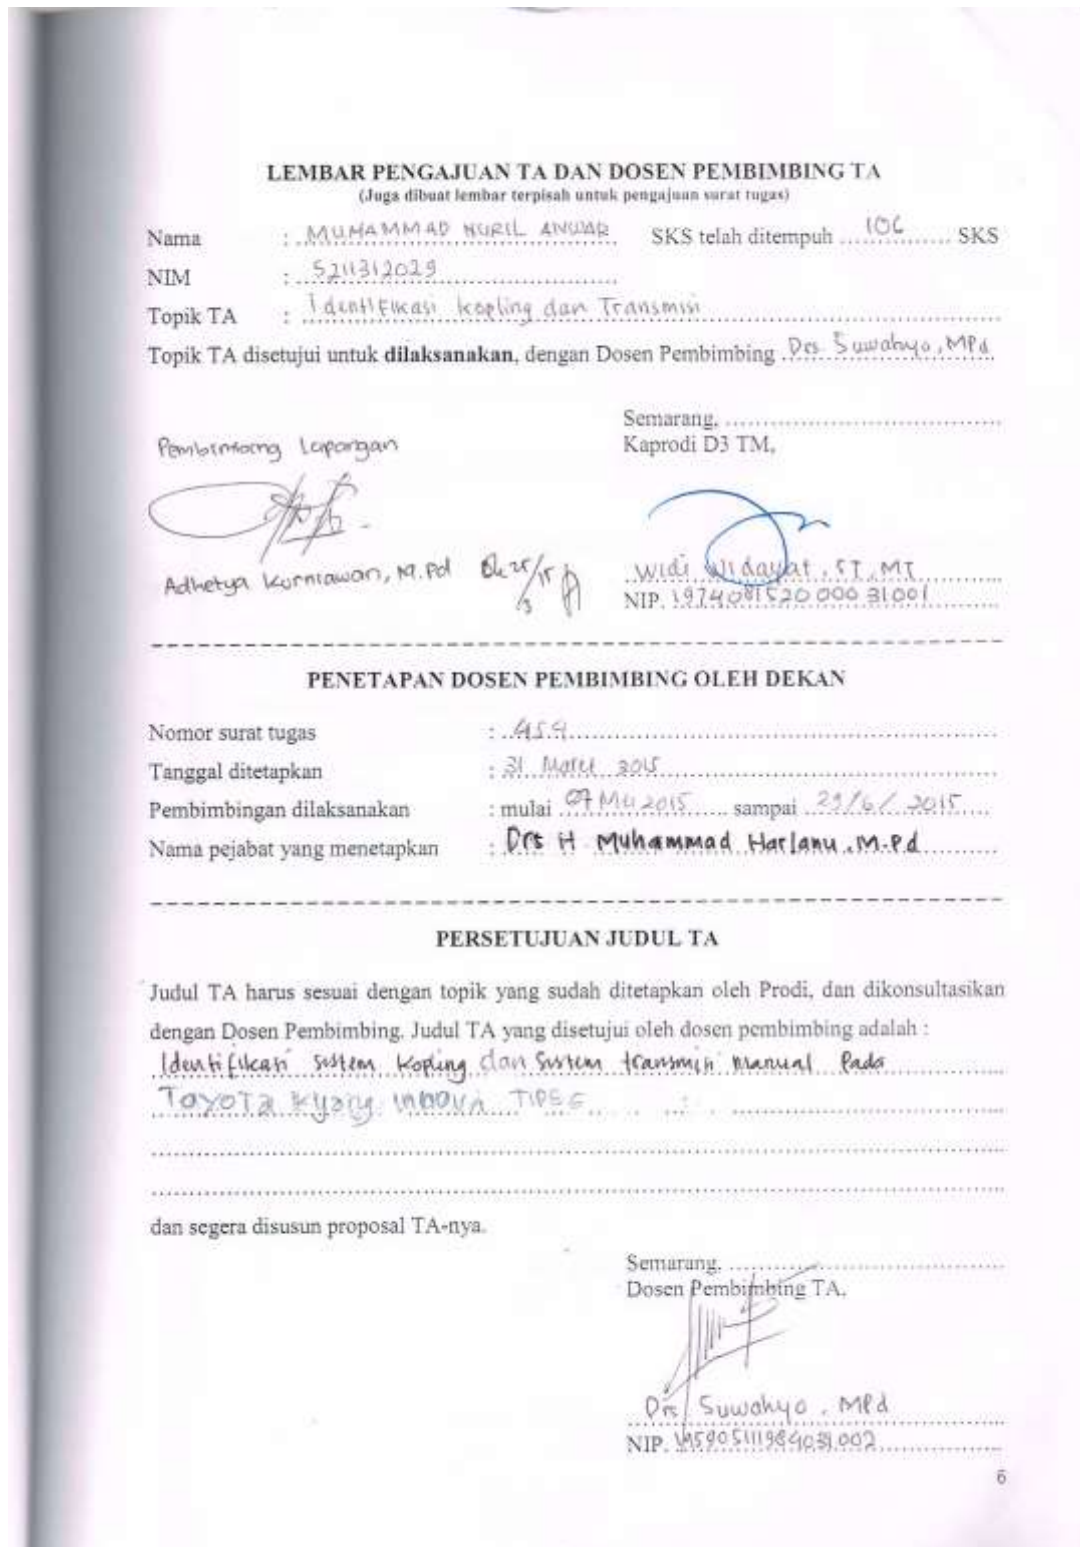 LEMBAR PENGAJUAN TA DAN DOSEN PEMBIMBING TA
(Juga dibuat lembar terpisah untuk pengajuan surat tugas)
Nama : MUHAMMAD NURIL ANWAR SKS telah ditempuh 106 SKS
NIM : 5211312029
Topik TA : Identifikasi kopling dan Transmisi
Topik TA disetujui untuk dilaksanakan, dengan Dosen Pembimbing Drs Suwahyo, MPd
Semarang, ........................
Pembimbing Lapangan Kaprodi D3 TM,
Adhetya Kurniawan, M.Pd Ok 25/3 15 Widi Widayat, ST, MT
NIP. 197408152000031001
PENETAPAN DOSEN PEMBIMBING OLEH DEKAN
Nomor surat tugas : 459
Tanggal ditetapkan : 31 Maret 2015
Pembimbingan dilaksanakan : mulai 07 2015 sampai 29/6/2015
Nama pejabat yang menetapkan : Drs H Muhammad Harlanu, M.Pd
PERSETUJUAN JUDUL TA
Judul TA harus sesuai dengan topik yang sudah ditetapkan oleh Prodi, dan dikonsultasikan
dengan Dosen Pembimbing. Judul TA yang disetujui oleh dosen pembimbing adalah :
Identifikasi sistem kopling dan sistem transmisi manual Pada
Toyota kijang innova TIPE G
dan segera disusun proposal TA-nya.
Semarang, ........................
Dosen Pembimbing TA,
Drs Suwahyo, MPd
NIP. 195905111984031002
6